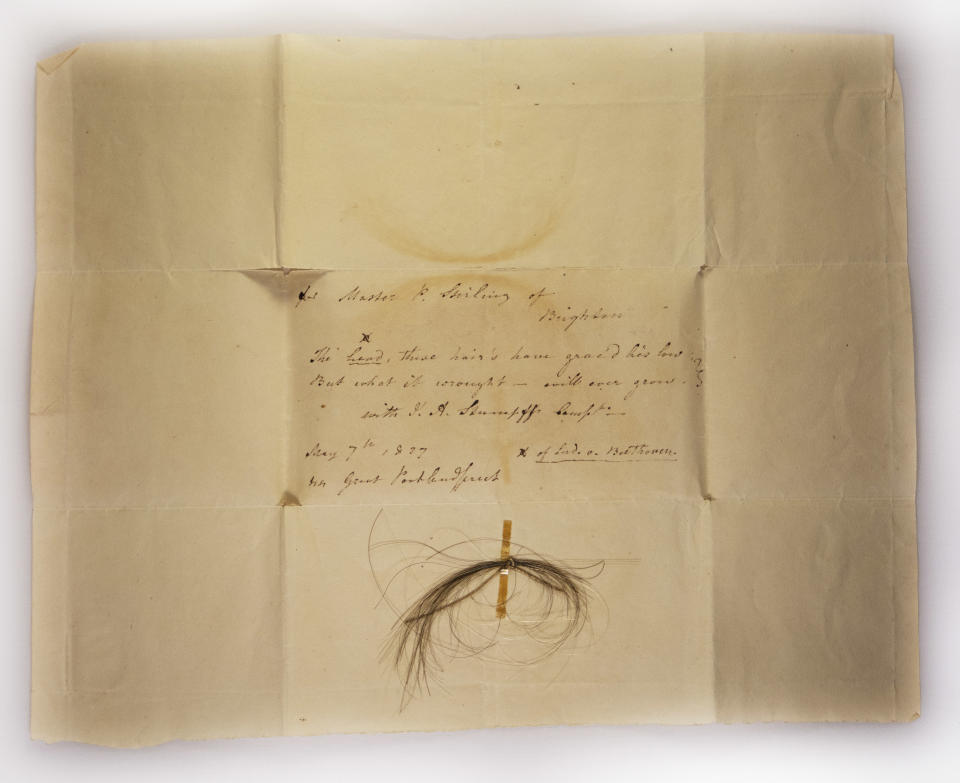 for Master P. Stirling of
Brighton
x
The head, these hair's have grac'd lies low
But what it wrought — will ever grow.
with J. A. Stumpff's Compts —
May 7th 1827
x of Lud. v. Beethoven.
Great Portland street